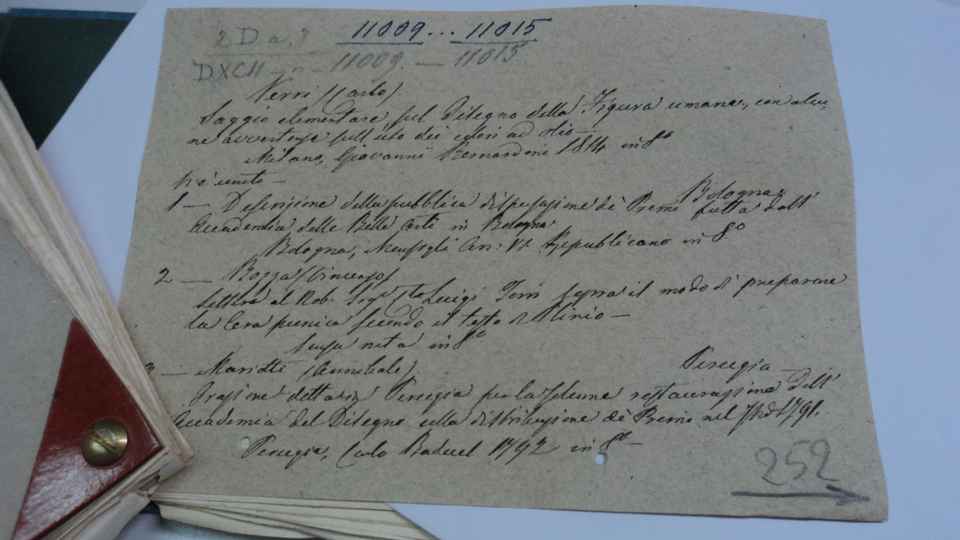 2 D a.
11009...11015
DXCII 11009. — 11015
Verri (Carlo)
Saggio elementare sul Disegno della Figura umana, con alcu-
ne avvertenze sull'uso dei colori ad olio —
Milano, Giovanni Bernardoni 1814 in 8º
Và unito —
1 — Descrizione della pubblica dispensazione di Premi fatta dall' Bologna
Accademia delle Belle Arti in Bologna
Bologna, An: VI Repubblicano in 8º
2 — Bozza (Vincenzo)
Lettera al Nob. Sig.r Luigi Torri sopra il modo di preparare
la Cera punica secondo il testo di Plinio —
Senza nota in 8º
3 — Mariotti (Annibale) Perugia —
Orazione detta in Perugia per la solenne restaurazione dell'
Accademia del Disegno colla distribuzione de' Premi nel 1791.
Perugia, Carlo Baduel 1792 in 8º
252